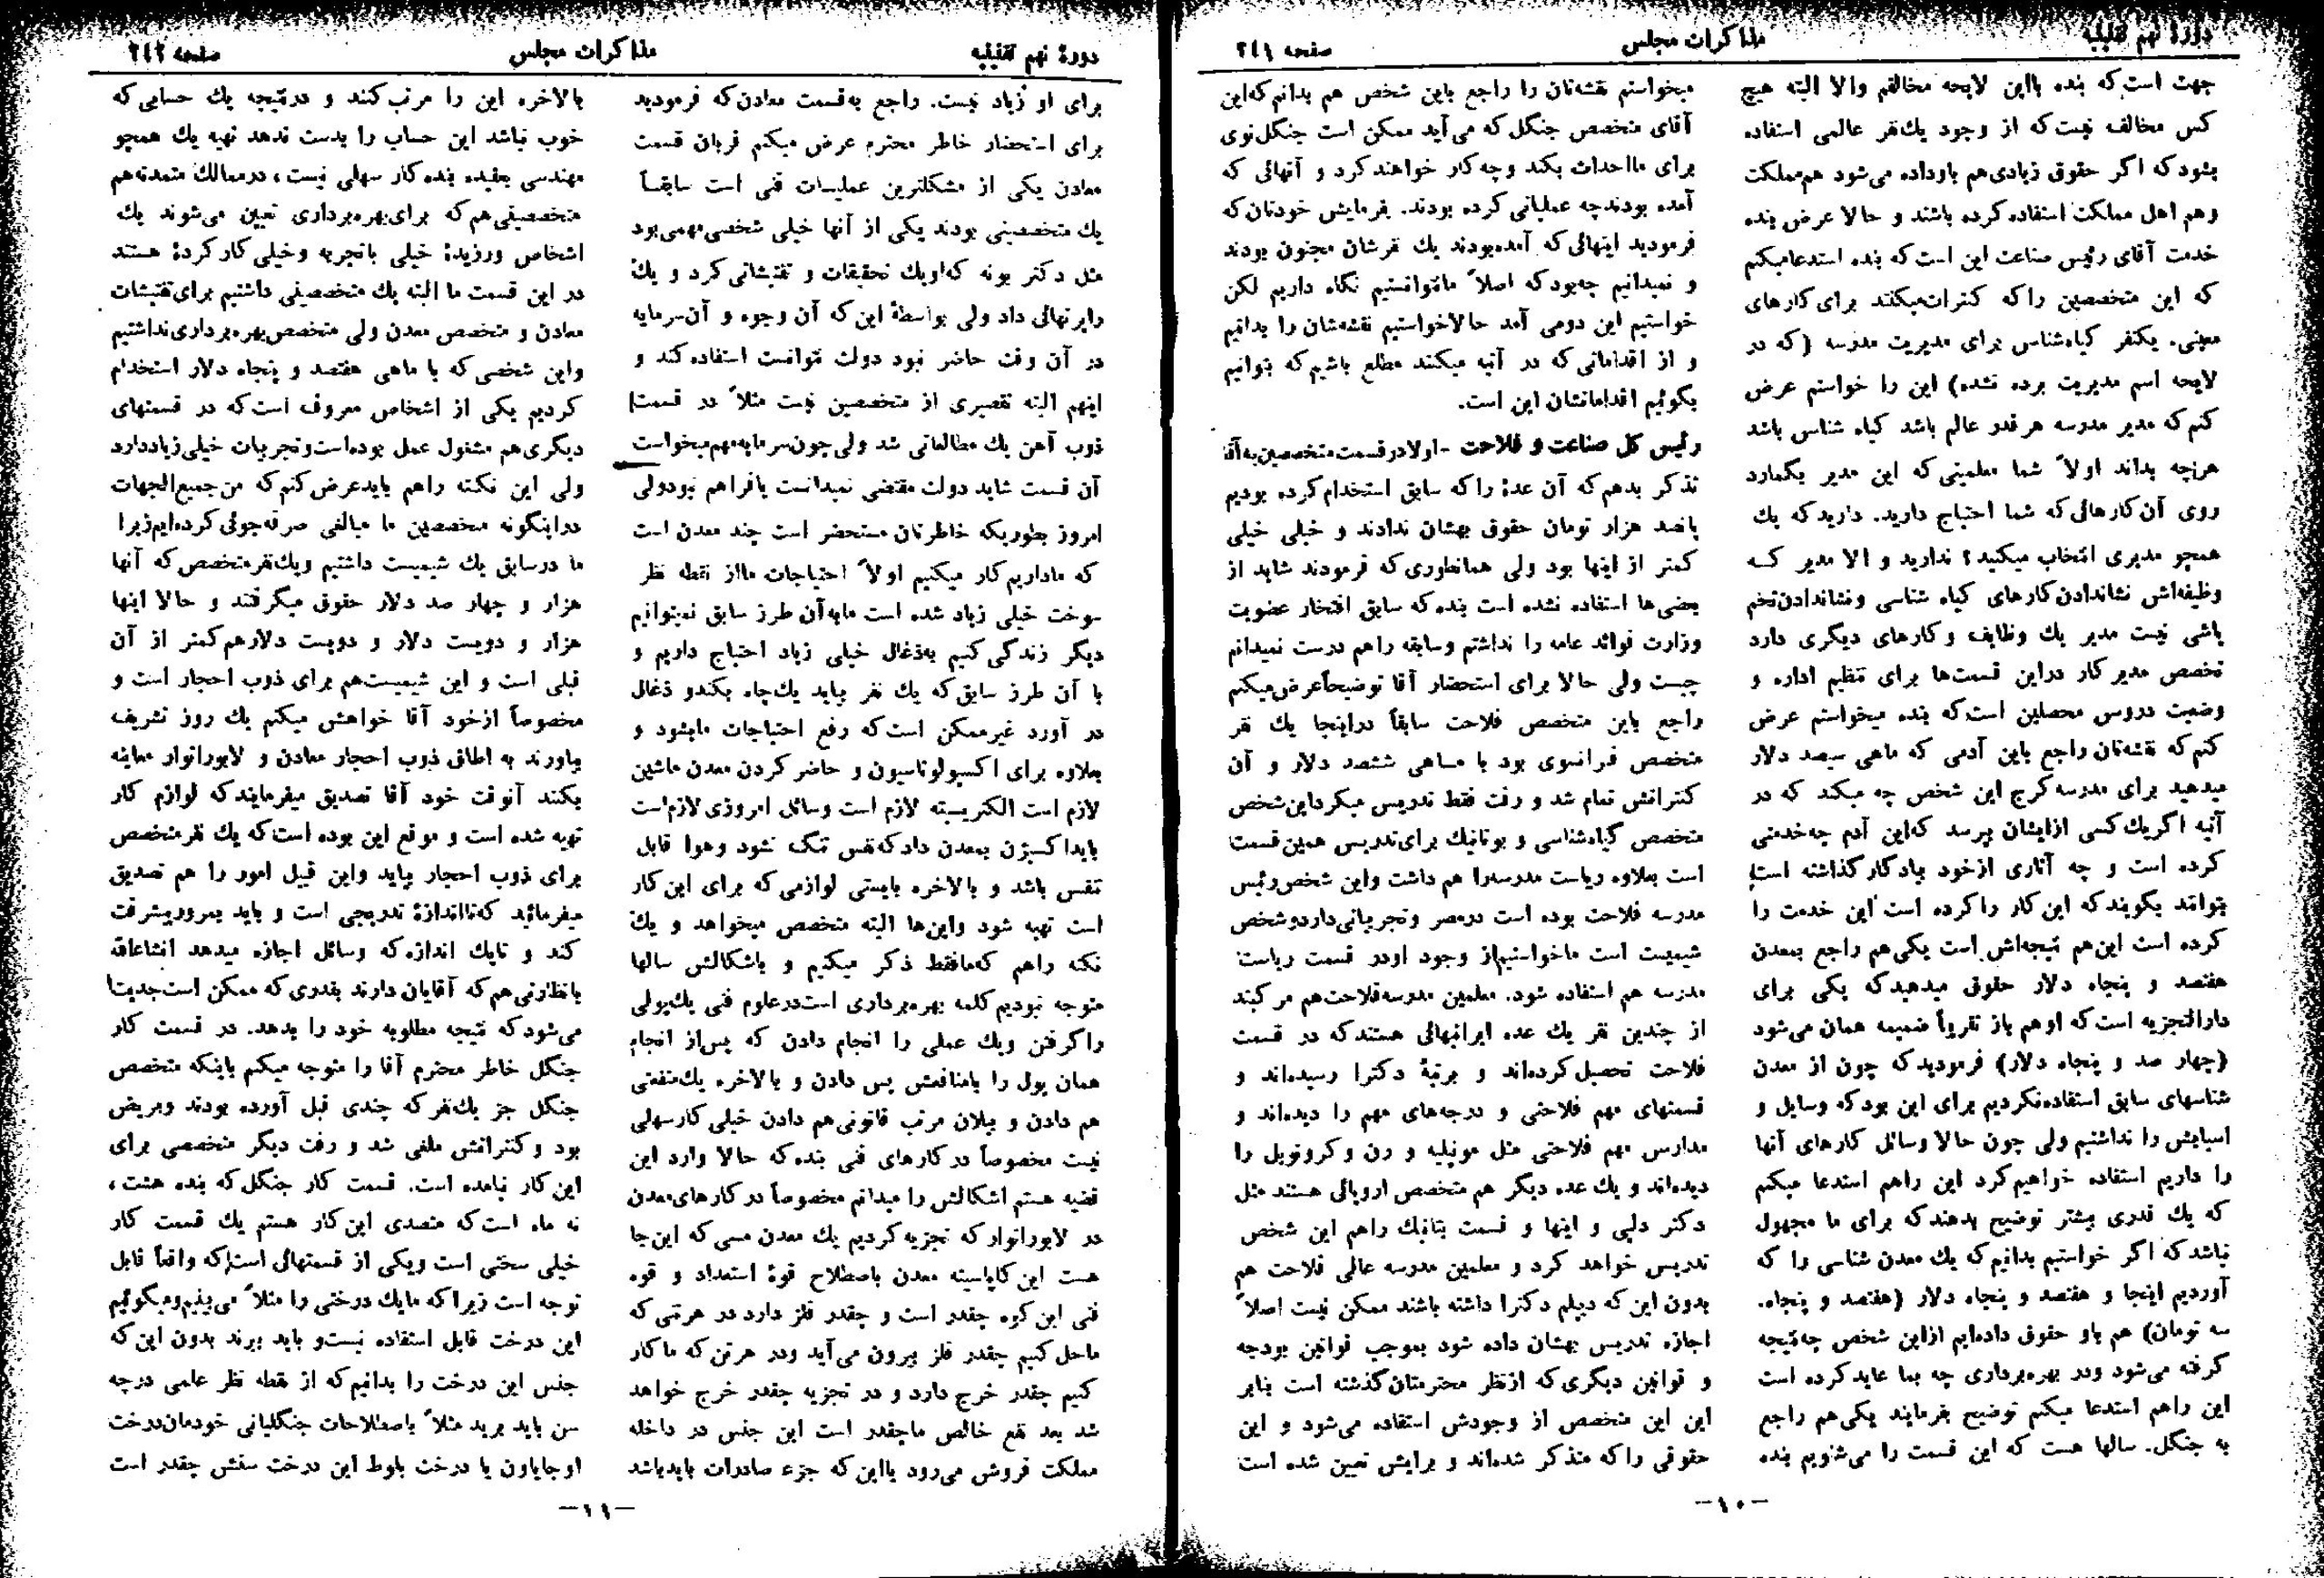 دورهٔ نهم تقنینیه
مذاکرات مجلس
صفحه ۲٤۱
جهت است که بنده بااین لایحه مخالفم والا البته هیچ
کس مخالف نیست که از وجود یك نفر عالمی استفاده
بشود که اگر حقوق زیادی هم باو داده می‌شود هم مملکت
وهم اهل مملکت استفاده کرده باشند و حالا عرض بنده
خدمت آقای رئیس صناعت این است که بنده استدعا میکنم
که این متخصصین را که کنترات میکنند برای کارهای
معینی. یکنفر گیاه‌شناس برای مدیریت مدرسه (که در
لایحه اسم مدیریت برده نشده) این را خواستم عرض
کنم که مدیر مدرسه هر قدر عالم باشد گیاه شناس باشد
هرچه بداند اولاً شما معلمینی که این مدیر بگمارد
روی آن کارهائی که شما احتیاج دارید. دارید که یك
همچو مدیری انتخاب میکنید؟ ندارید و الا مدیر کـه
وظیفه‌اش نشاندادن کارهای گیاه شناسی و نشاندادن تخم
پاشی نیست مدیر یك وظایف و کارهای دیگری دارد
تخصص مدیر کار دراین قسمت‌ها برای تنظیم اداره و
وضعیت دروس محصلین است که بنده میخواستم عرض
کنم که نقشه‌تان راجع باین آدمی که ماهی سیصد دلار
میدهید برای مدرسه کرج این شخص چه میکند که در
آتیه اگر یك کسی از ایشان پرسد که این آدم چه خدمتی
کرده است و چه آثاری از خود یادگار گذاشته است
بتواند بگویند که این کار را کرده است این خدمت را
کرده است این هم نتیجه‌اش است یکی هم راجع بمعدن
هفتصد و پنجاه دلار حقوق میدهید که یکی برای
دارالتجزیه است که او هم باز تقریباً ضمیمه همان می‌شود
(چهار صد و پنجاه دلار) فرمودید که چون از معدن
شناسهای سابق استفاده نکردیم برای این بود که وسایل و
اسبابش را نداشتیم ولی چون حالا وسائل کارهای آنها
را داریم استفاده خواهیم کرد این راهم استدعا میکنم
که یك قدری بیشتر توضیح بدهند که برای ما مجهول
نباشد که اگر خواستیم بدانیم که یك معدن شناسی را که
آوردیم اینجا و هفتصد و پنجاه دلار (هفتصد و پنجاه.
سه تومان) هم باو حقوق داده‌ایم ازاین شخص چه نتیجه
گرفته می‌شود ودر بهره‌برداری چه بما عاید کرده است
این راهم استدعا میکنم توضیح بفرمایند یکی هم راجع
به جنگل. سالها هست که این قسمت را می‌شنویم بنده
میخواستم نقشه‌تان را راجع باین شخص هم بدانم که این
آقای متخصص جنگل که می‌آید ممکن است جنگل نوی
برای مااحداث بکند وچه کار خواهند کرد و آنهائی که
آمده بودند چه عملیاتی کرده بودند. بفرمایش خودتان که
فرمودید اینهائی که آمده بودند یك نفرشان مجنون بودند
و نمیدانیم چه بود که اصلاً مانتوانستیم نگاه داریم لکن
خواستیم این دومی آمد حالاخواستیم نقشه‌شان را بدانیم
و از اقداماتی که در آتیه میکنند مطلع باشیم که بتوانیم
بگوئیم اقداماتشان این است.
رئیس کل صناعت و فلاحت - اولا در قسمت متخصصین به آقا
تذکر بدهم که آن عدهٔ را که سابق استخدام کرده بودیم
پانصد هزار تومان حقوق بهشان ندادند و خیلی خیلی
کمتر از اینها بود ولی همانطوری که فرمودند شاید از
بعضی‌ها استفاده نشده است بنده که سابق افتخار عضویت
وزارت فوائد عامه را نداشتم وسابقه راهم درست نمیدانم
چیست ولی حالا برای استحضار آقا توضیحاً عرض میکنم
راجع باین متخصص فلاحت سابقاً دراینجا یك نفر
متخصص فرانسوی بود با مـاهی ششصد دلار و آن
کنتراتش تمام شد و رفت فقط تدریس میکرد این شخص
متخصص گیاه‌شناسی و بوتانیك برای تدریس همین قسمت
است بعلاوه ریاست مدرسه را هم داشت واین شخص رئیس
مدرسه فلاحت بوده است درمصر وتجربیاتی دارد و شخص
شیمیست است ماخواستیم از وجود اودر قسمت ریاست
مدرسه هم استفاده شود. معلمین مدرسه فلاحت هم مرکبند
از چندین نفر یك عده ایرانیهائی هستند که در قسمت
فلاحت تحصیل کرده‌اند و برتبهٔ دکترا رسیده‌اند و
قسمتهای مهم فلاحتی و درجه‌های مهم را دیده‌اند و
مدارس مهم فلاحتی مثل مونپلیه و رن و کرونوبل را
دیده‌اند و یك عده دیگر هم متخصص اروپائی هستند مثل
دکتر دلپی و اینها و قسمت بتانیك راهم این شخص
تدریس خواهد کرد و معلمین مدرسه عالی فلاحت هم
بدون این که دیپلم دکترا داشته باشند ممکن نیست اصلاً
اجازه تدریس بهشان داده شود بموجب قوانین بودجه
و قوانین دیگری که ازنظر محترمتان گذشته است بنابر
این این متخصص از وجودش استفاده می‌شود و این
حقوقی را که متذکر شده‌اند و برایش تعیین شده است
-۱۰-
دورهٔ نهم تقنینیه
مذاکرات مجلس
صفحه ۲٤۲
برای او زیاد نیست. راجع به قسمت معادن که فرمودید
برای استحضار خاطر محترم عرض میکنم قربان قسمت
معادن یکی از مشکلترین عملیات فنی است سابقـاً
یك متخصصینی بودند یکی از آنها خیلی شخصی مهمی بود
مثل دکتر بونه که او یك تحقیقات و تفتیشاتی کرد و یك
راپرتهائی داد ولی بواسطهٔ این که آن وجوه و آن سرمایه
در آن وقت حاضر نبود دولت نتوانست استفاده کند و
اینهم البته تقصیری از متخصصین نیست مثلاً در قسمت
ذوب آهن یك مطالعاتی شد ولی چون سرمایه مهم میخواست
آن قسمت شاید دولت مقتضی نمیدانست یا فراهم نبود ولی
امروز بطوریکه خاطرتان مستحضر است چند معدن است
که ماداریم کار میکنیم اولاً احتیاجات مااز نقطه نظر
سوخت خیلی زیاد شده است مابه آن طرز سابق نمیتوانیم
دیگر زندگی کنیم به ذغال خیلی زیاد احتیاج داریم و
با آن طرز سابق که یك نفر بیاید یك چاه بکند و ذغال
در آورد غیر ممکن است که رفع احتیاجات مابشود و
بعلاوه برای اکسپلوتاسیون و حاضر کردن معدن ماشین
لازم است الکتریسیته لازم است وسائل امروزی لازم است
باید اکسیژن بمعدن داد که نفس تنگ نشود وهوا قابل
تنفس باشد و بالاخره بایستی لوازمی که برای این کار
است تهیه شود واین‌ها البته متخصص میخواهد و یك
نکته راهم که مافقط ذکر میکنیم و باشکالش سالها
متوجه نبودیم کلمه بهره‌برداری است در علوم فنی یك پولی
را گرفتن ویك عملی را انجام دادن که پس از انجام
همان پول را بامنافعش پس دادن و بالاخره یك منفعتی
هم دادن و بیلان مرتب قانونی هم دادن خیلی کار سهلی
نیست مخصوصاً در کارهای فنی بنده که حالا وارد این
قضیه هستم اشکالش را میدانم مخصوصاً در کارهای معدن
در لابوراتوار که تجزیه کردیم یك معدن مسی که این جا
هست این کاپاسیته معدن باصطلاح قوهٔ استعداد و قوه
فنی این کوه چقدر است و چقدر فلز دارد در هر تنی که
ماحل کنیم چقدر فلز بیرون می‌آید ودر هر تن که ما کار
کنیم چقدر خرج دارد و در تجزیه چقدر خرج خواهد
شد بعد نفع خالص ماچقدر است این جنس در داخله
مملکت فروش می‌رود یااین که جزء صادرات باید باشد
بالاخره این را مرتب کنند و در نتیجه یك حسابی که
خوب نباشد این حساب را بدست ندهد تهیه یك همچو
مهندسی بعقیده بنده کار سهلی نیست، در ممالك متمدنه هم
متخصصینی هم که برای بهره‌برداری تعیین می‌شوند یك
اشخاص ورزیدهٔ خیلی باتجربه وخیلی کار کردهٔ هستند
در این قسمت ما البته یك متخصصینی داشتیم برای تفتیشات
معادن و متخصص معدن ولی متخصص بهره‌برداری نداشتیم
واین شخصی که با ماهی هفتصد و پنجاه دلار استخدام
کردیم یکی از اشخاص معروف است که در قسمتهای
دیگری هم مشغول عمل بوده است و تجربیات خیلی زیاد دارد
ولی این نکته راهم باید عرض کنم که من جمیع الجهات
دراینگونه متخصصین ما مبالغی صرفه جوئی کرده‌ایم زیرا
ما درسابق یك شیمیست داشتیم ویك نفر متخصص که آنها
هزار و چهار صد دلار حقوق میگرفتند و حالا اینها
هزار و دویست دلار و دویست دلارهم کمتر از آن
قبلی است و این شیمیست هم برای ذوب احجار است و
مخصوصاً ازخود آقا خواهش میکنم یك روز تشریف
بیاورند به اطاق ذوب احجار معادن و لابوراتوار معاینه
بکنند آنوقت خود آقا تصدیق میفرمایند که لوازم کار
تهیه شده است و موقع این بوده است که یك نفر متخصص
برای ذوب احجار بیاید واین قبیل امور را هم تصدیق
میفرمائید که تااندازهٔ تدریجی است و باید بمرور پیشرفت
کند و تایك اندازه که وسائل اجازه میدهد انشاءالله
بانظارتی هم که آقایان دارند بقدری که ممکن است جدیت
می‌شود که نتیجه مطلوبه خود را بدهد. در قسمت کار
جنگل خاطر محترم آقا را متوجه میکنم باینکه متخصص
جنگل جز یك نفر که چندی قبل آورده بودند ومریض
بود و کنتراتش ملغی شد و رفت دیگر متخصصی برای
این کار نیامده است. قسمت کار جنگل که بنده هشت،
نه ماه است که متصدی این کار هستم یك قسمت کار
خیلی سختی است ویکی از قسمتهائی است که واقعاً قابل
توجه است زیرا که مایك درختی را مثلاً می‌بینیم و میگوئیم
این درخت قابل استفاده نیست و باید برند بدون این که
جنس این درخت را بدانیم که از نقطه نظر علمی درچه
سن باید برید مثلاً باصطلاحات جنگلبانی خودمان درخت
اوجا یاون یا درخت بلوط این درخت سفتش چقدر است
-۱۱-